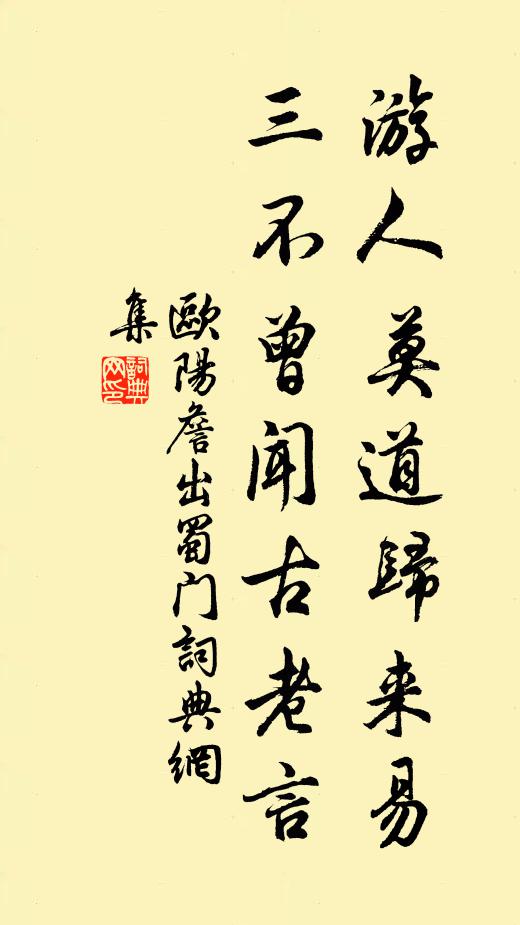 游人莫道歸来易
三不曾聞古老言
歐陽詹出蜀门詞典網
集
詞典网印